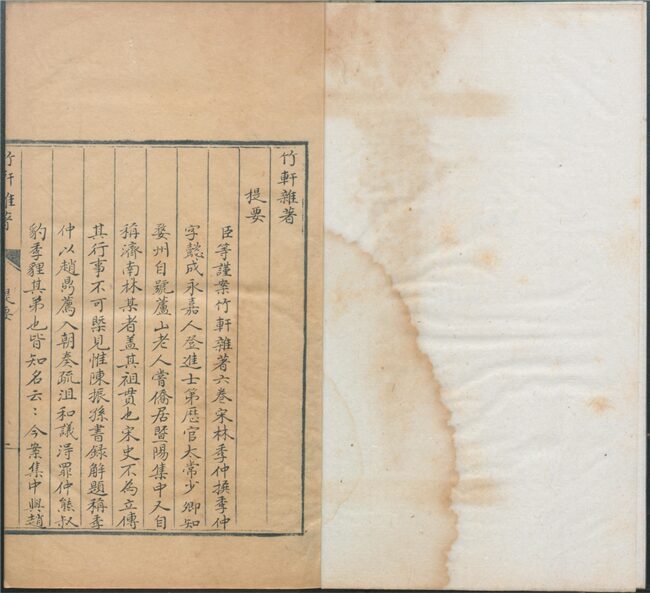 竹軒雜著
提要
臣等謹案竹軒雜著六卷宋林季仲撰季仲
字懿成永嘉人登進士第歷官太常少卿知
婺州自號蘆山老人嘗僑居暨陽集中又自
稱濟南林某者蓋其祖貫也宋史不為立傳
其行事不可槩見惟陳振孫書録解題稱季
仲以趙鼎薦入朝奏疏沮和議得罪仲熊叔
豹季貍其弟也皆知名云云今案集中與趙
竹軒雜著
提要
一